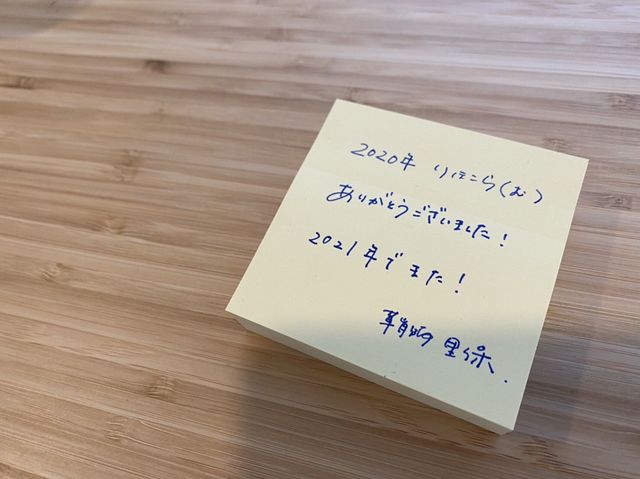 2020年 りほこら(む)
ありがとうございました!
2021年でまた!
里保.